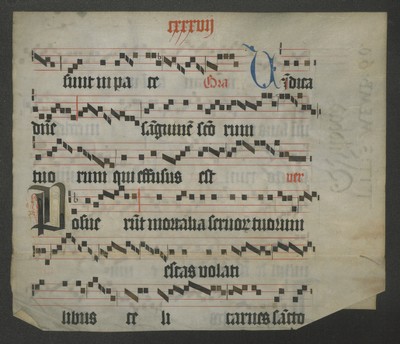 cxxxvij
sunt in pa ce Gra Vindica
dn̄e sāguinē scō rum
tuo rum qui effusus est ver
Posue rūt mortalia seruor tuorum
escas volati
libus ce li carnes sācto